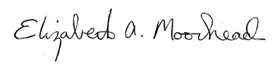 Elizabeth A. Moorhead